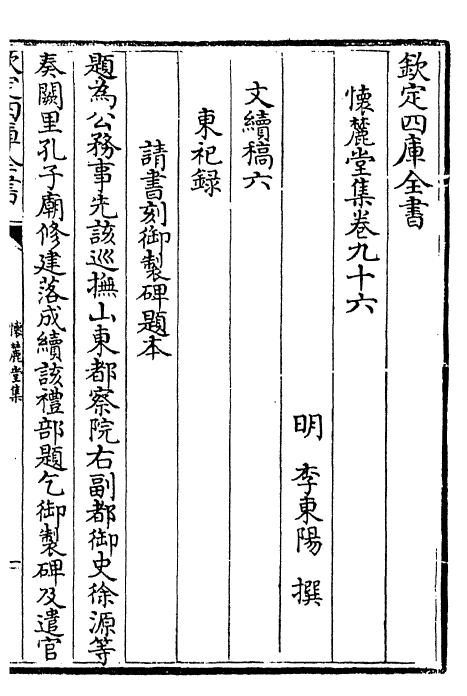 欽定四庫全書
懷麓堂集卷九十六
明 李東陽 撰
文續稿六
東祀録
請書刻御製碑題本
題為公務事先該巡撫山東都察院右副都御史徐源等
奏闕里孔子廟修建落成續該禮部題乞御製碑及遣官
欽定四庫全書
懷麓堂集
一